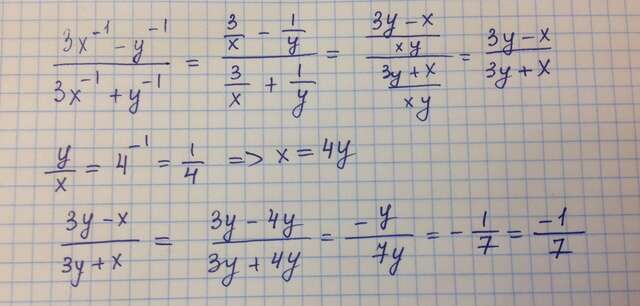 (3x⁻¹ - y⁻¹)/(3x⁻¹ + y⁻¹) = (3/x - 1/y)/(3/x + 1/y) = ((3y - x)/xy)/((3y + x)/xy) = (3y - x)/(3y + x)
y/x = 4⁻¹ = 1/4 => x = 4y
(3y - x)/(3y + x) = (3y - 4y)/(3y + 4y) = -y/7y = -1/7 = -1/7